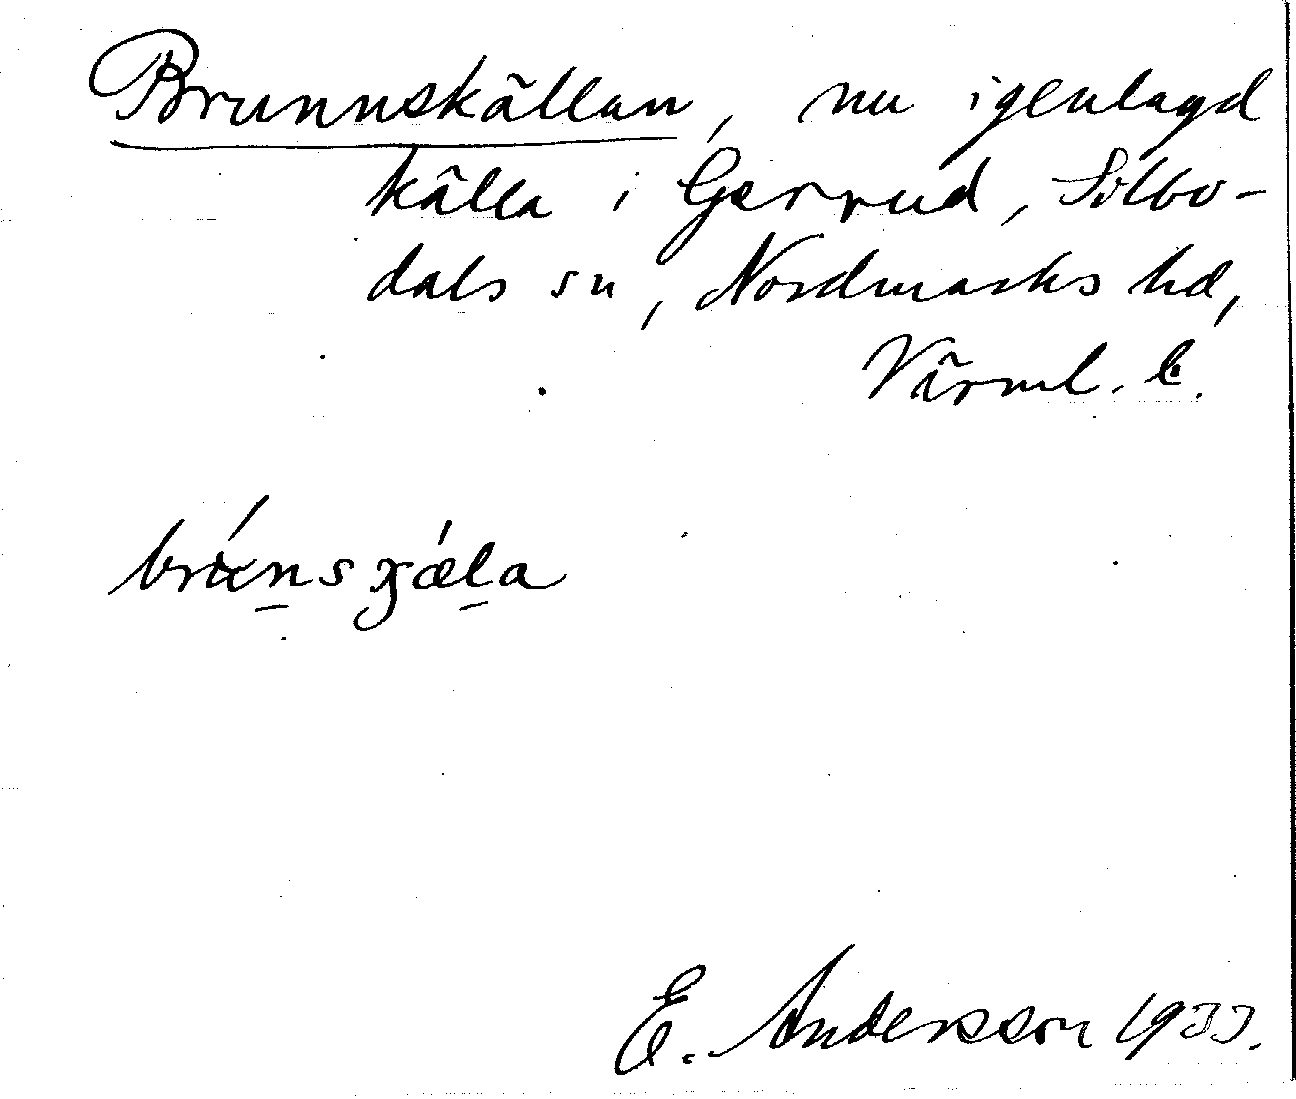 Brunnskällan, nu igenlagd
källa i Gerrud, Silbo-
dals sn, Nordmarks hd,
Värml. l.
E. Andersson 1933.